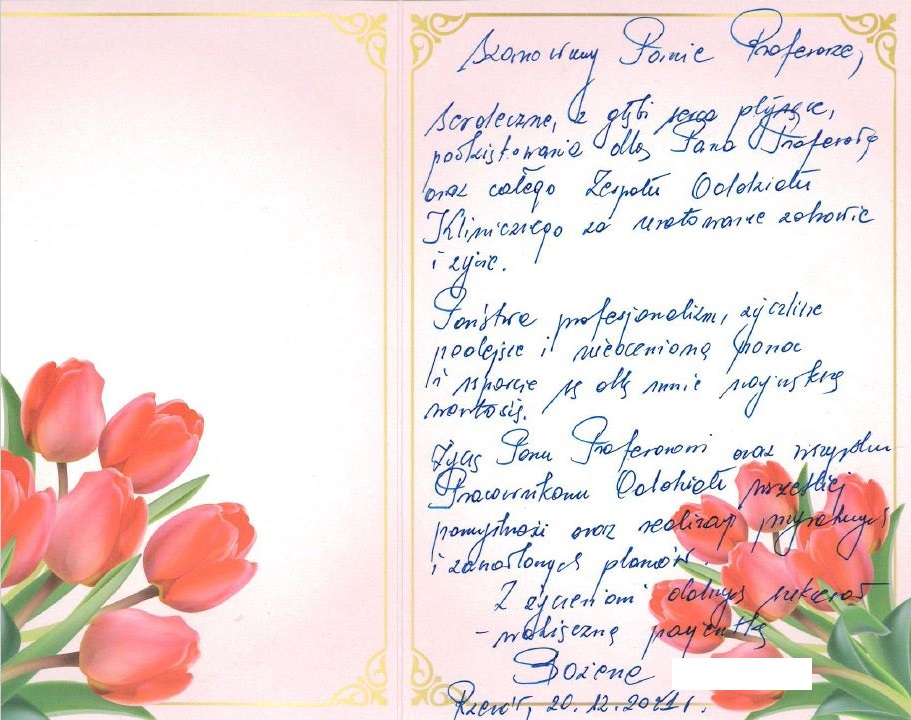 Szanowny Panie Profesorze,
Serdeczne, z głębi serca płynące,
podziękowania dla Pana Profesora
oraz całego Zespołu Oddziału
Klinicznego za uratowanie zdrowie
i życie.
Państwa profesjonalizm, życzliwe
podejście i nieoceniona pomoc
i wsparcie są dla mnie największą
wartością.
Życzę Panu Profesorowi oraz wszystkim
Pracownikom Oddziału wszelkiej
pomyślności oraz realizacji
i zamierzonych planów.
Z życzeniami dalszych sukcesów
- wdzięczna pacjentka
Bożena
Rzeszów, 20.12.2021 r.